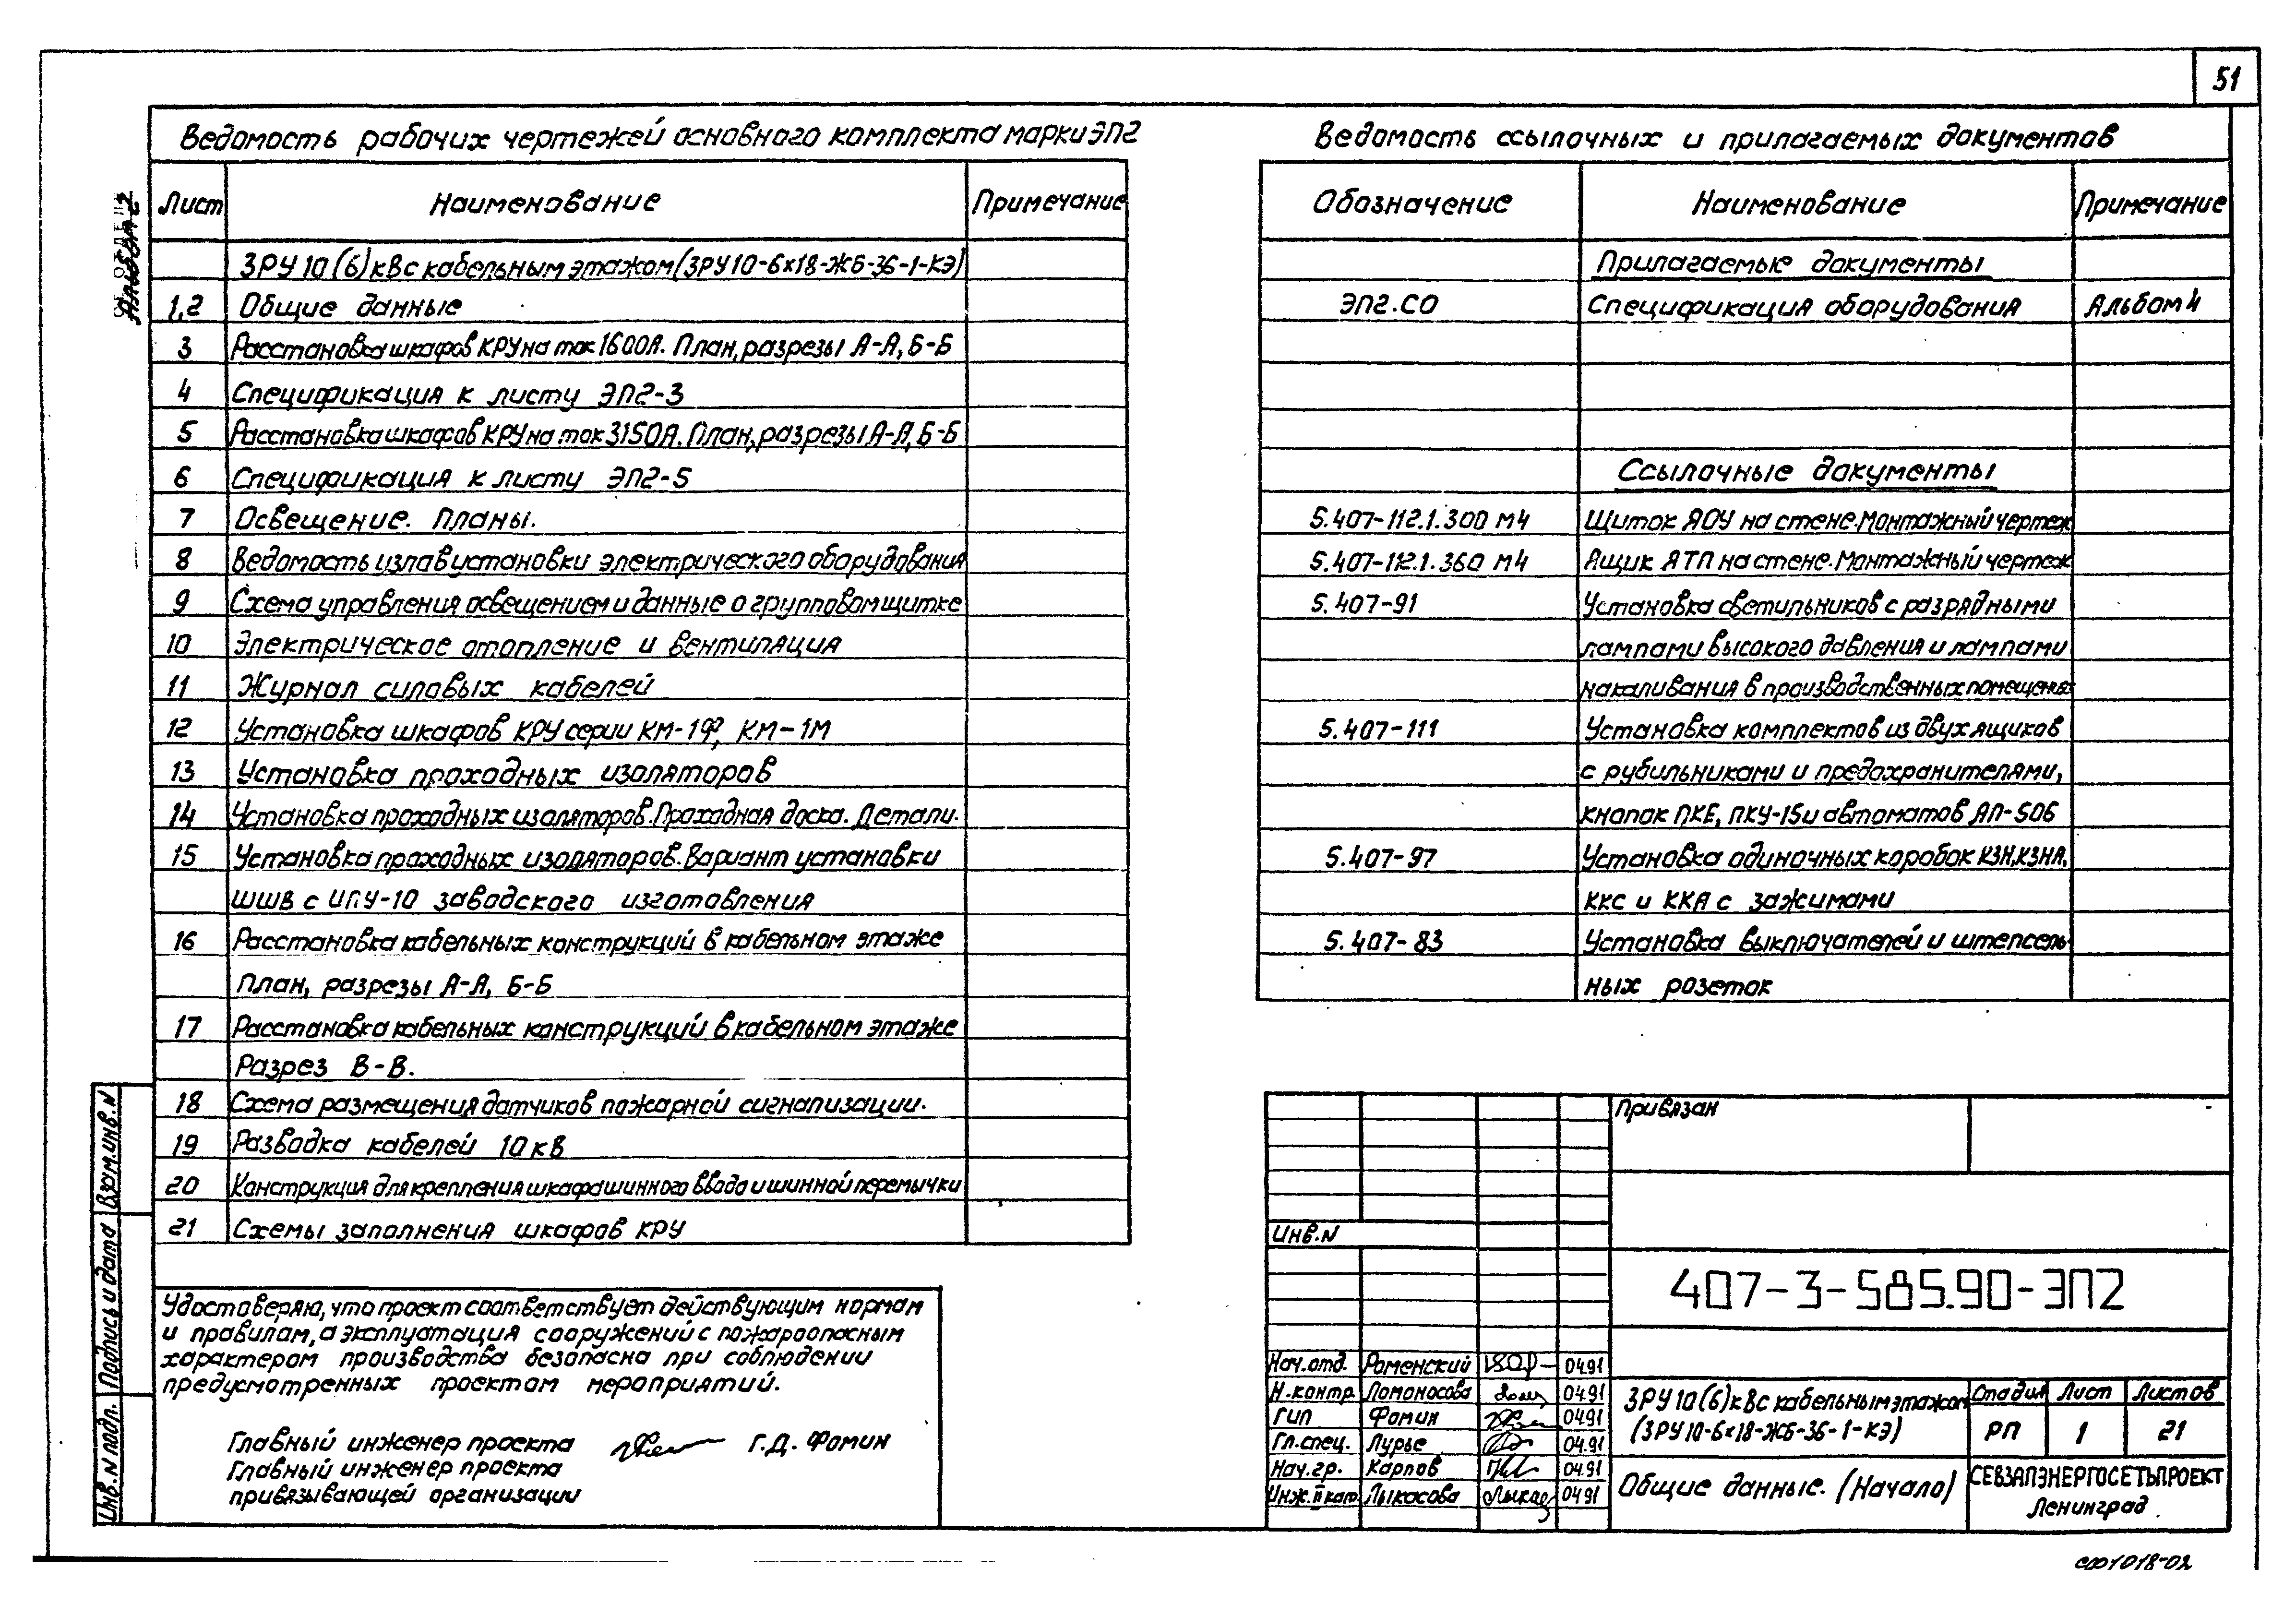 51
Альбом 2
Ведомость рабочих чертежей основного комплекта марки ЭП2
Лист Наименование Примечание
ЗРУ 10 (6) кВ с кабельным этажом (ЗРУ 10-6х18-ЖБ-36-1-КЭ)
1,2 Общие данные
3 Расстановка шкафов КРУ на ток 1600А. План, разрезы А-А, Б-Б
4 Спецификация к листу ЭП2-3
5 Расстановка шкафов КРУ на ток 3150А. План, разрезы А-А, Б-Б
6 Спецификация к листу ЭП2-5
7 Освещение. Планы.
8 Ведомость узлов установки электрического оборудования
9 Схема управления освещением и данные о групповом щитке
10 Электрическое отопление и вентиляция
11 Журнал силовых кабелей
12 Установка шкафов КРУ серии КМ-1Ф, КМ-1М
13 Установка проходных изоляторов
14 Установка проходных изоляторов. Проходная доска. Детали.
15 Установка проходных изоляторов. Вариант установки
ШШВ с ИПУ-10 заводского изготовления
16 Расстановка кабельных конструкций в кабельном этаже
План, разрезы А-А, Б-Б
17 Расстановка кабельных конструкций в кабельном этаже
Разрез В-В.
18 Схема размещения датчиков пожарной сигнализации.
19 Разводка кабелей 10 кВ
20 Конструкция для крепления шкафа шинного ввода и шинной перемычки
21 Схемы заполнения шкафов КРУ
Ведомость ссылочных и прилагаемых документов
Обозначение Наименование Примечание
Прилагаемые документы
ЭП2.СО Спецификация оборудования Альбом 4
Ссылочные документы
5.407-112.1.300 М4 Щиток ЯОУ на стене. Монтажный чертеж
5.407-112.1.360 М4 Ящик ЯТП на стене. Монтажный чертеж
5.407-91 Установка светильников с разрядными
лампами высокого давления и лампами
накаливания в производственных помещениях
5.407-111 Установка комплектов из двух ящиков
с рубильниками и предохранителями,
кнопок ПКЕ, ПКУ-15 и автоматов АП-50Б
5.407-97 Установка одиночных коробок КЗН, КЗНА,
ККС и ККА с зажимами
5.407-83 Установка выключателей и штепсель-
ных розеток
Удостоверяю, что проект соответствует действующим нормам
и правилам, а эксплуатация сооружений с пожароопасным
характером производства безопасна при соблюдении
предусмотренных проектом мероприятий.
Главный инженер проекта Г.Д. Фомин
Главный инженер проекта
привязывающей организации
Взам. инв. N
Подпись и дата
Инв. N подл.
Привязан
Инв. N
407-3-585.90-ЭП2
Нач. отд. Роменский 04.91
Н. контр. Ломоносова 04.91
ГИП Фомин 04.91
Гл. спец. Лурье 04.91
Нач. гр. Карпов 04.91
Инж. II кат. Лыкасова 04.91
ЗРУ 10 (6) кВ с кабельным этажом
(ЗРУ 10-6х18-ЖБ-36-1-КЭ)
Стадия Лист Листов
РП 1 21
Общие данные. (Начало)
СЕВЗАПЭНЕРГОСЕТЬПРОЕКТ
Ленинград
сф1018-02